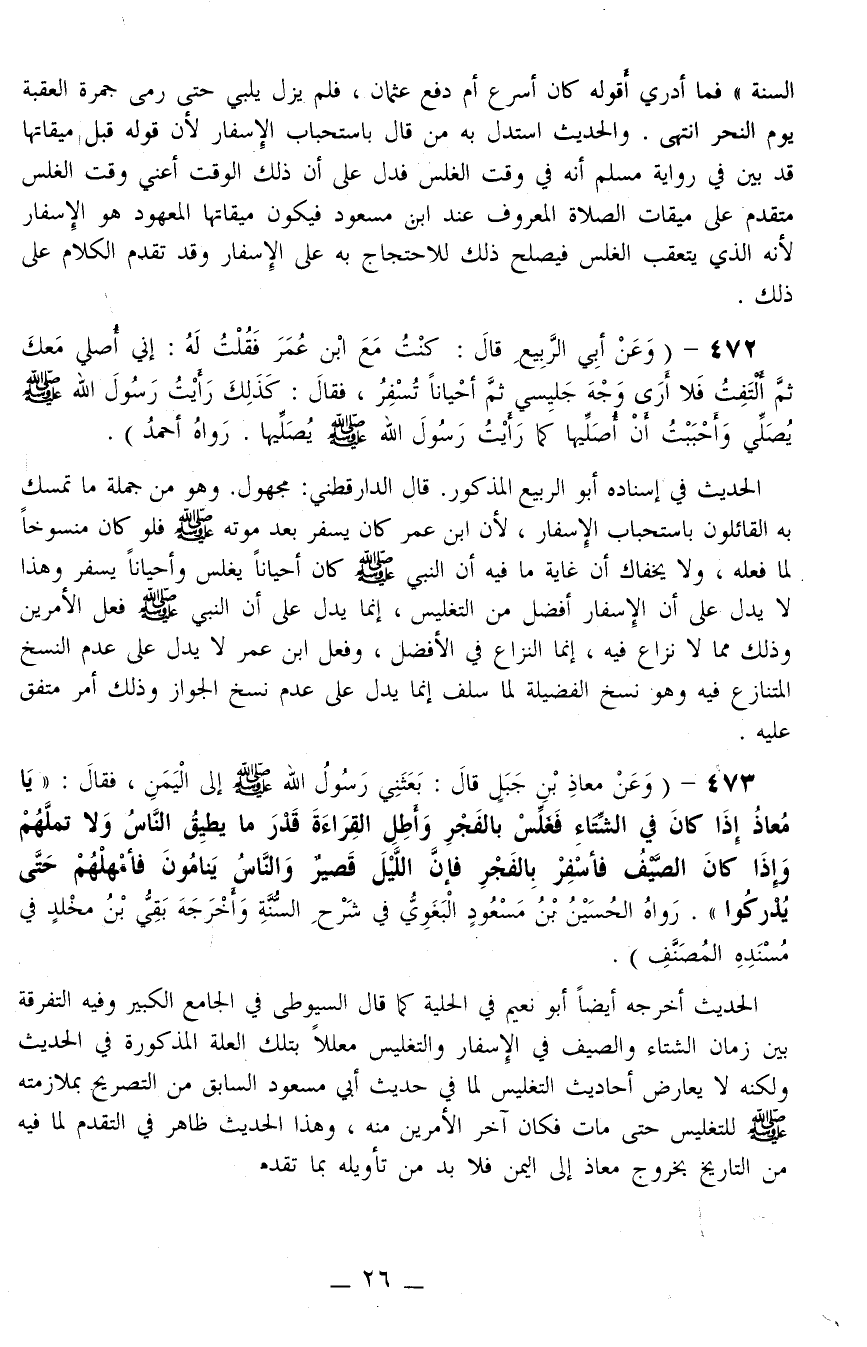 السنة » فما أدري أَقوله كان أسرع أم دفع عثمان ، فلم يزل يلبي حتى رمى جمرة العقبة
يوم النحر انتهى . والحديث استدل به من قال باستحباب الإسفار لأن قوله قبل ميقاتها
قد بين في رواية مسلم أنه في وقت الغلس فدل على أن ذلك الوقت أعني وقت الغلس
متقدم على ميقات الصلاة المعروف عند ابن مسعود فيكون ميقاتها المعهود هو الإسفار
لأنه الذي يتعقب الغلس فيصلح ذلك للاحتجاج به على الإسفار وقد تقدم الكلام على
ذلك .
٤٧٢ – ( وَعَنْ أبي الرَّبِيعِ قالَ : كنْتُ مَعَ ابْنِ عُمَرَ فَقُلْتُ لَهُ : إني أُصلي مَعكَ
ثمَّ ألْتَفِتُ فَلا أرَى وَجْهَ جَلِيسي ثمَّ أحْياناً تُسْفِرُ ، فقالَ : كَذَلِكَ رَأَيْتُ رَسُولَ الله ﷺ
يُصَلِّي وَأَحْبَبْتُ أَنْ أُصَلِّيها كما رَأَيْتُ رَسُولَ الله ﷺ يُصَلِّيها . رَواهُ أحمدُ ) .
الحديث في إسناده أبو الربيع المذكور. قال الدارقطني: مجهول. وهو من جملة ما تمسك
به القائلون باستحباب الإسفار ، لأن ابن عمر كان يسفر بعد موته ﷺ فلو كان منسوخاً
لما فعله ، ولا يخفاك أن غاية ما فيه أن النبي ﷺ كان أحياناً يغلس وأحياناً يسفر وهذا
لا يدل على أن الإسفار أفضل من التغليس ، إنما يدل على أن النبي ﷺ فعل الأمرين
وذلك مما لا نزاع فيه ، إنما النزاع في الأفضل ، وفعل ابن عمر لا يدل على عدم النسخ
المتنازع فيه وهو نسخ الفضيلة لما سلف إنما يدل على عدم نسخ الجواز وذلك أمر متفق
عليه .
٤٧٣ – ( وَعَنْ معاذِ بْنِ جَبَلٍ قالَ : بَعَثَنِي رَسُولُ الله ﷺ إلى الْيَمَنِ ، فقالَ : « يَا
مُعاذُ إِذَا كانَ في الشِّتَاءِ فَغَلِّسْ بالفَجْرِ وَأَطِلِ القِرَاءَةَ قَدْرَ ما يطيِقُ النَّاسُ وَلا تملَّهُمْ
وَإِذَا كانَ الصَّيْفُ فأسْفِرْ بِالفَجْرِ فإنَّ اللَّيْلَ قَصيرٌ وَالنَّاسُ يَنامُونَ فأمْهِلْهُمْ حَتَّى
يُدْركُوا » . رَواهُ الحُسَيْنُ بْنُ مَسْعُودٍ الْبَغَوِيُّ في شَرْحِ السُّنَّةِ وَأَخْرَجَهَ بَقِيُّ بْنُ مخْلدٍ في
مُسْنَدِهِ المُصَنَّفِ ) .
الحديث أخرجه أيضاً أبو نعيم في الحلية كما قال السيوطى في الجامع الكبير وفيه التفرقة
بين زمان الشتاء والصيف في الإسفار والتغليس معللاً بتلك العلة المذكورة في الحديث
ولكنه لا يعارض أحاديث التغليس لما في حديث أبي مسعود السابق من التصريح بملازمته
ﷺ للتغليس حتى مات فكان آخر الأمرين منه ، وهذا الحديث ظاهر في التقدم لما فيه
من التاريخ بخروج معاذ إلى اليمن فلا بد من تأويله بما تقدم
– ٢٦ –